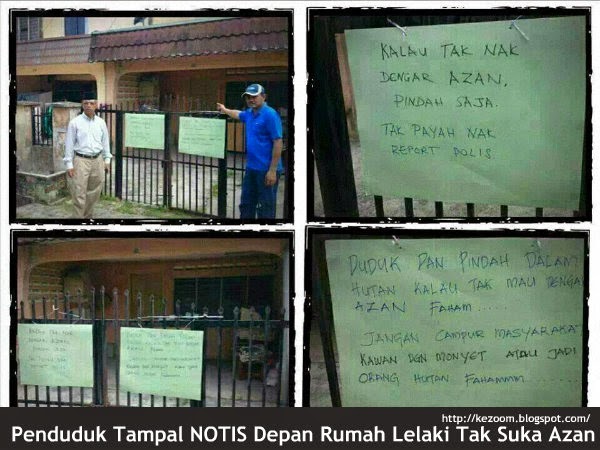 KALAU TAK NAK
DENGAR AZAN,
PINDAH SAJA.
TAK PAYAH NAK
REPORT POLIS
DUDUK DAN PINDAH DALAM
HUTAN KALAU TAK MAU DENGAR
AZAN FAHAM...
JANGAN CAMPUR MASYARAKAT
KAWAN DGN MONYET ATAU JADI
ORANG HUTAN FAHAMMM............
http://kezoom.blogspot.com/
Penduduk Tampal NOTIS Depan Rumah Lelaki Tak Suka Azan